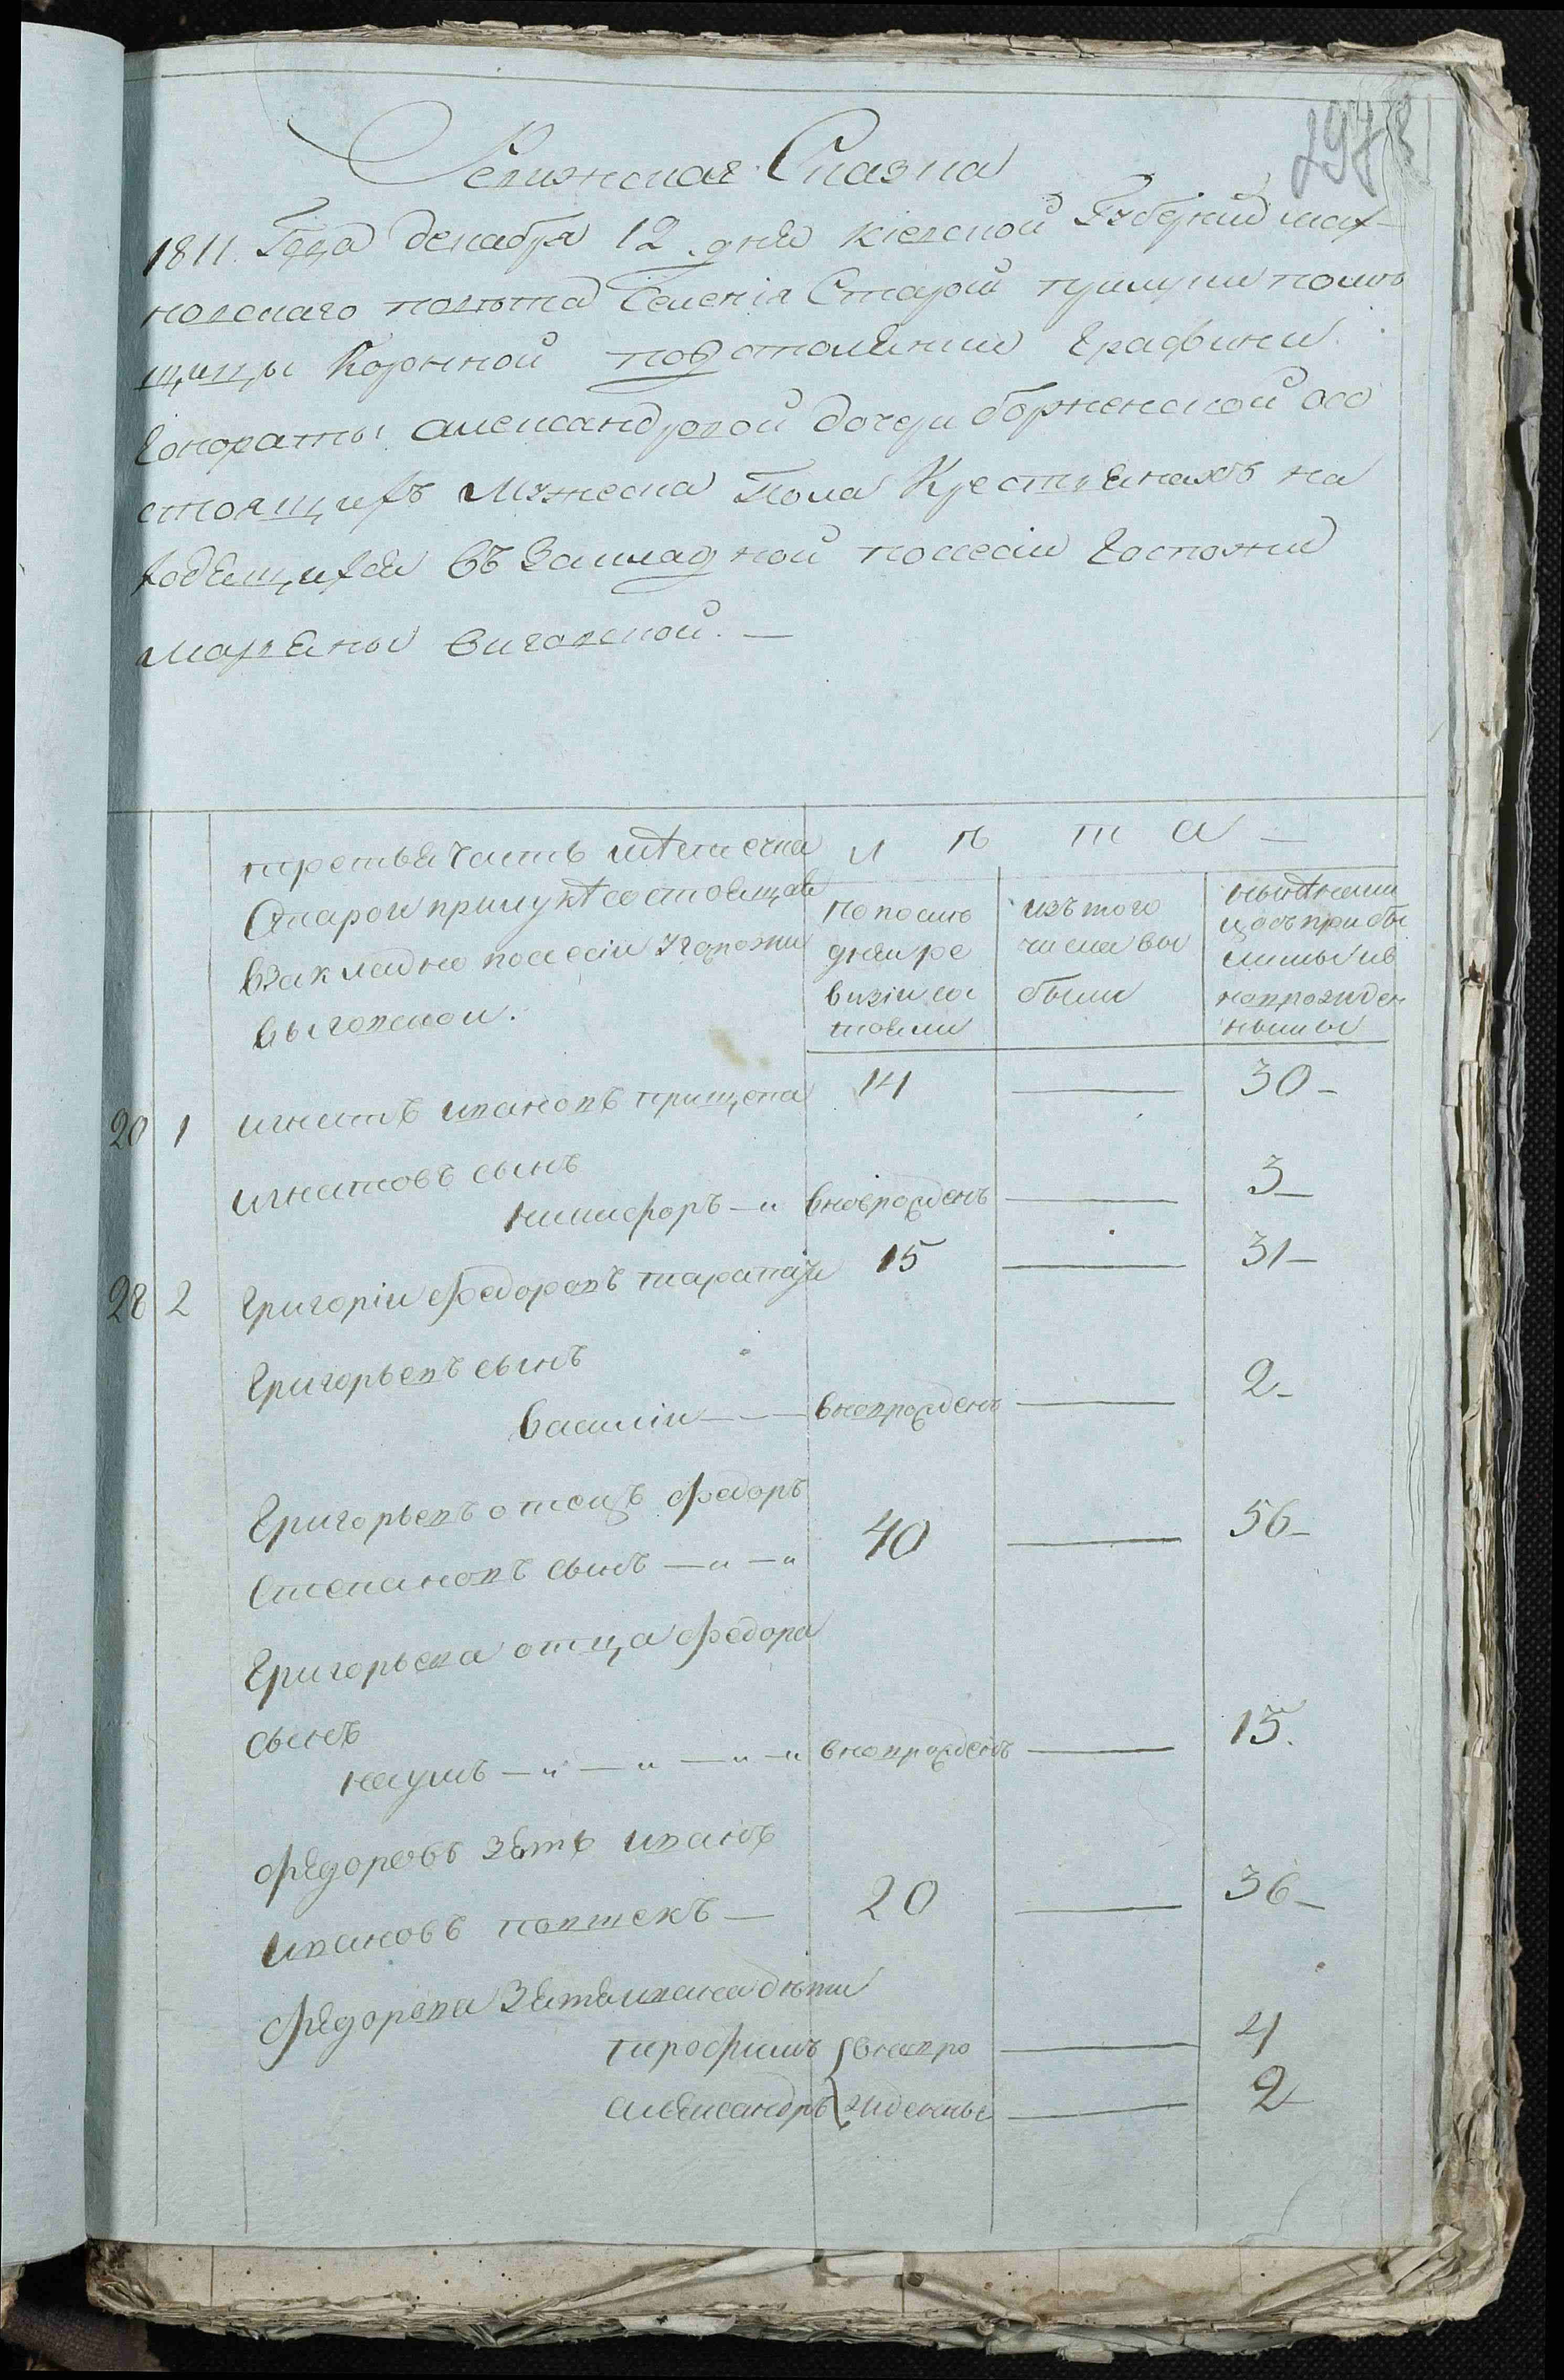 297
Ревижская Сказка
1811. Года декабря 12 дня кіевской Губернии мах-
новскаго повъта Селенія Старой прилуки помъ
щицы Коронной подстолини Графини
Гонораты александровой дочери борженской осо
стоящихъ мужеска Пола Крестьянахъ на
ходящихся въ Закладной посесіи Госпожи
Марьяны виговской. —
третья часть мѣстечка
Старои прилукѣ состоящая
взакладно посесіи Угоспожи
выговской.
л ѣ т а —
по послѣ
дняи ре
визіи со
тояли
изъ того
числа вы
были
нынѣ на ли
цо съ прибы
лыми и в
новорожден
ными
20 1 игнатъ ивановъ прищепа 14 — 30 —
игнатовъ сынъ
никифоръ — вноврожденъ — 3 —
28 2 Григоріи федоровъ 15 — 31 —
Григорьевъ сынъ
василіи — — вноврожденъ — 2 —
Григорьевъ отецъ федоръ
Степановъ сынъ — „ — „ 40 — 56 —
Григорьева отца федора
сынъ
наумъ — „ — „ — „ — „ вноврожденъ — 15.
федоровъ зять иванъ
ивановъ — 20 — 36 —
федорова Зятя ивана дѣти
трофимъ { вновро — 4
александръ { жденные — 2